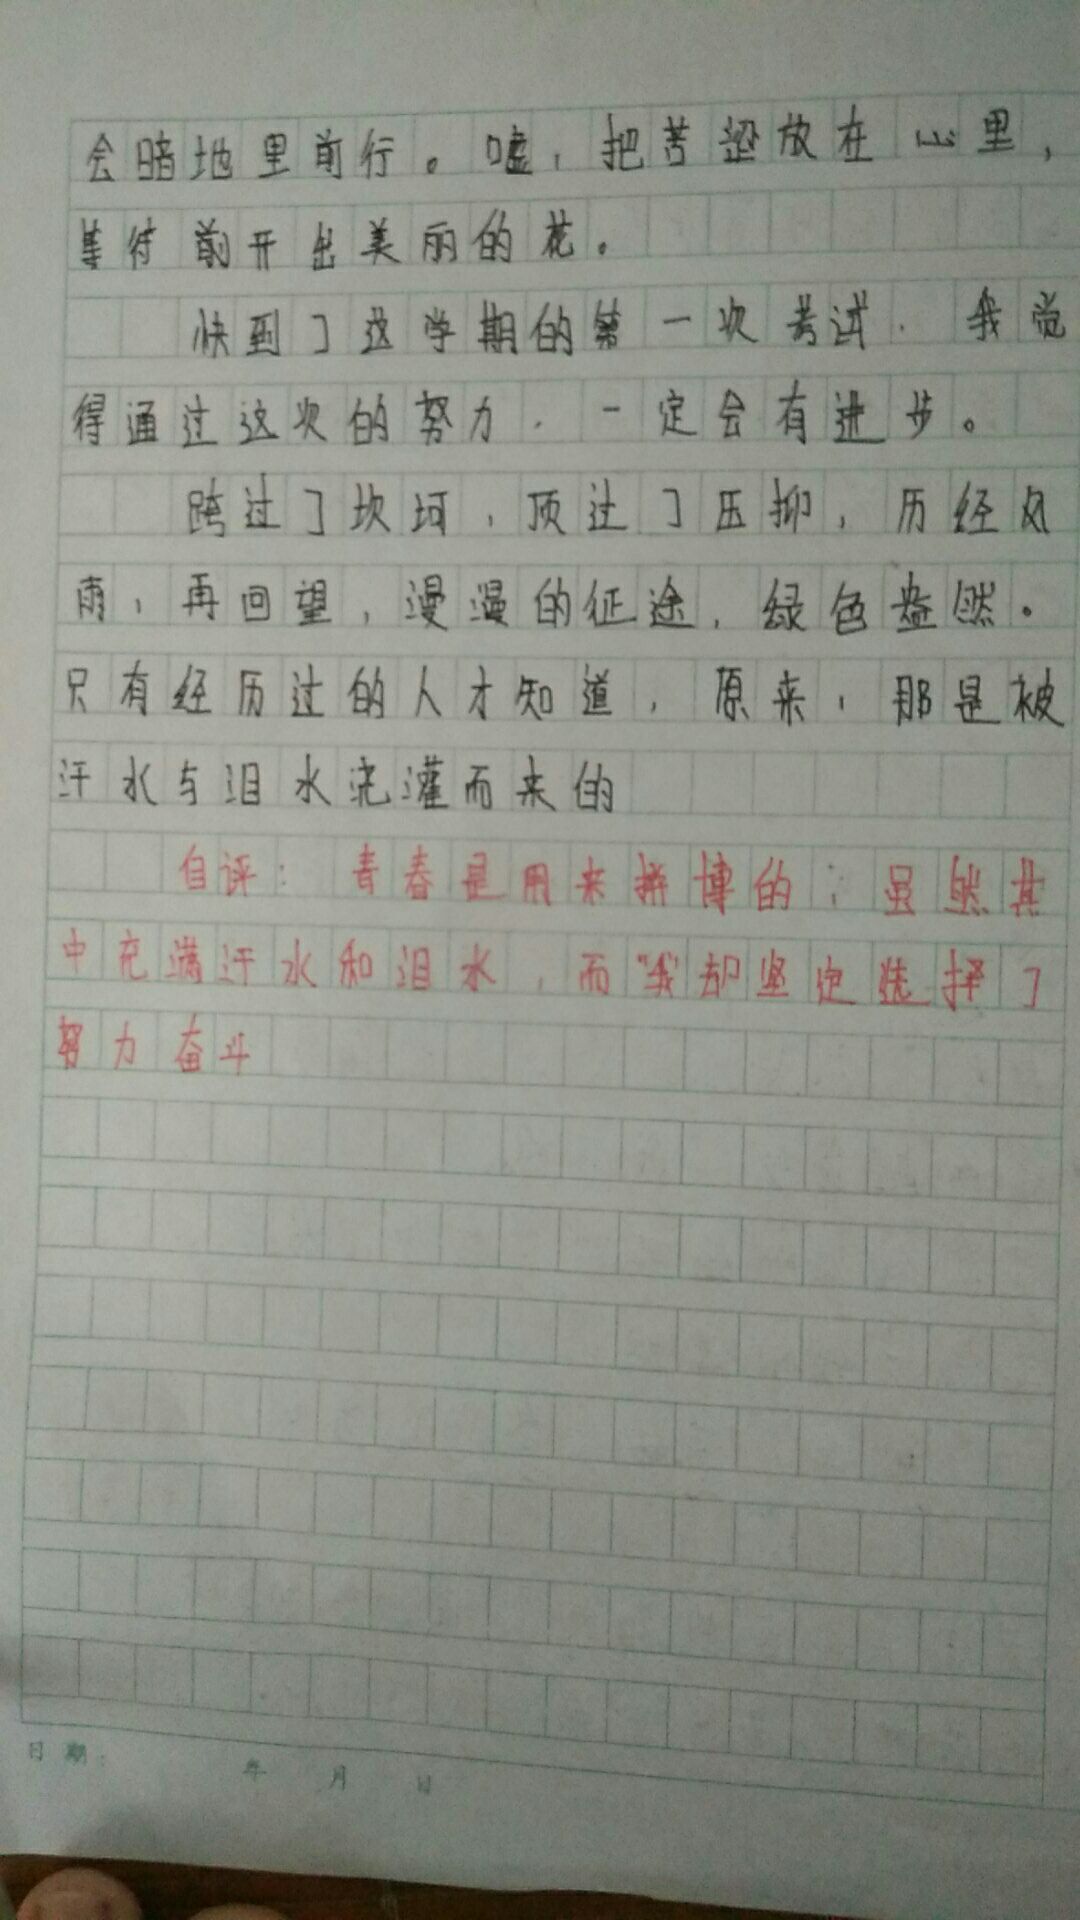 会暗地里前行。嘘,把苦涩放在心里,
等待前开出美丽的花。
快到了这学期的第一次考试.我觉
得通过这次的努力.一定会有进步。
跨过了坎坷,顶过了压抑,历经风
雨,再回望,漫漫的征途,绿色盎然。
只有经历过的人才知道,原来,那是被
汗水与泪水浇灌而来的
自评:青春是用来拼博的;虽然其
中充满汗水和泪水,而"我"却坚定选择了
努力奋斗
日期: 年 月 日